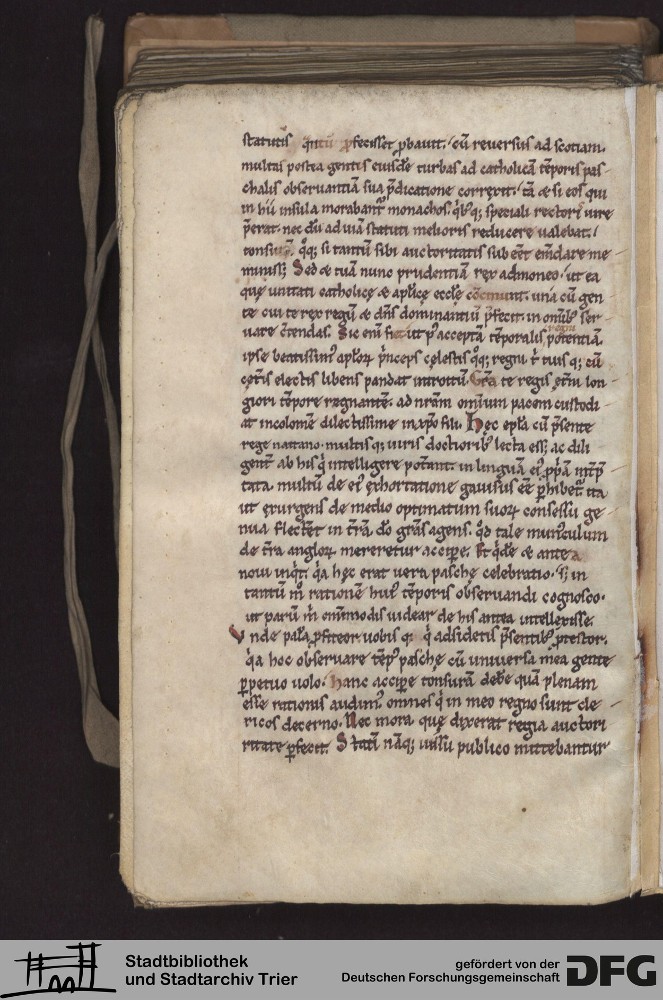 statutis qntū pfecisset pbauit. cū reversus ad scotiam.
multas postea gentis eiusdē turbas ad catholicā tēporis pas-
chalis observantiā sua p̄dicatione correxit. tā & si eos qui
in hii insula morabant᷑ monachos. qͥbꝰq; speciali rectoris iure
p̄erat. nec dū ad uiā statuti melioris reducere ualebat.
tonsurę. qͦq; si tantū sibi auctoritatis subeēt em̄dare me
miniss&. Sed & tuā nunc prudentiā rex admoneo. ut ea
quę unitati catholicę & aplīcę ecclę concinunt. una cū gen
te cui te rex regū & dn̄s dominantiū p̄fecit. in omībꝰ ser-
uare c̄tendas. Sic enī fiet ut p acceptā tēporalis regni potentiā.
ipse beatissimꝰ aplorū p̄nceps cęlestis qͦq; regni t᷑ tuisq; cū
cęt̄is electis libens pandat introitū. Grā te regis et̄ni lon
giori tēpore regnantē. ad nrām omnium pacem custodi
at incolomē dilectissime in xpō fili. Hec eplā cū p̄sente
rege naitano. multisq; uiris doctioribꝰ lecta ess&. ac dili
gent᷑ ab his qͥ intelligere pot̄ant. in linguā eiꝰ pp̄ā int̄p̄
tata. multū de eiꝰ exhortatione gauisus eē phibet᷑. ita
ut exurgens de medio optimatum suorū consessu ge
nua flect&̄ in t̄rā. dō grās agens. qd tale munꝰculum
de t̄ra anglorū mereretur accipe. Et qͥdē & antea
noui inqͥt. qͥa hęc erat uera paschę celebratio. s; in
tantū m̊ rationē huiꝰ tēporis observandi cognosco.
ut parū m̄ om̄imodis uidear de his antea intellexisse.
Vnde palā pfiteor uobis q; qͥ adsidetis p̄sentibꝰ ptestor.
qͥa hoc observare tēpꝰ paschę cū universa mea gente
ppetuo uolo. hanc accipe tonsurā debe quā plenam
esse rationis audimꝰ. omnes qͥ in meo regno sunt cle
ricos decerno. Nec mora quę dixerat regia auctori
ritate pfecit. Statī nāq; iussu publico mittebantur
Stadtbibliothek
und Stadtarchiv Trier
gefördert von der
Deutschen Forschungsgemeinschaft
DFG